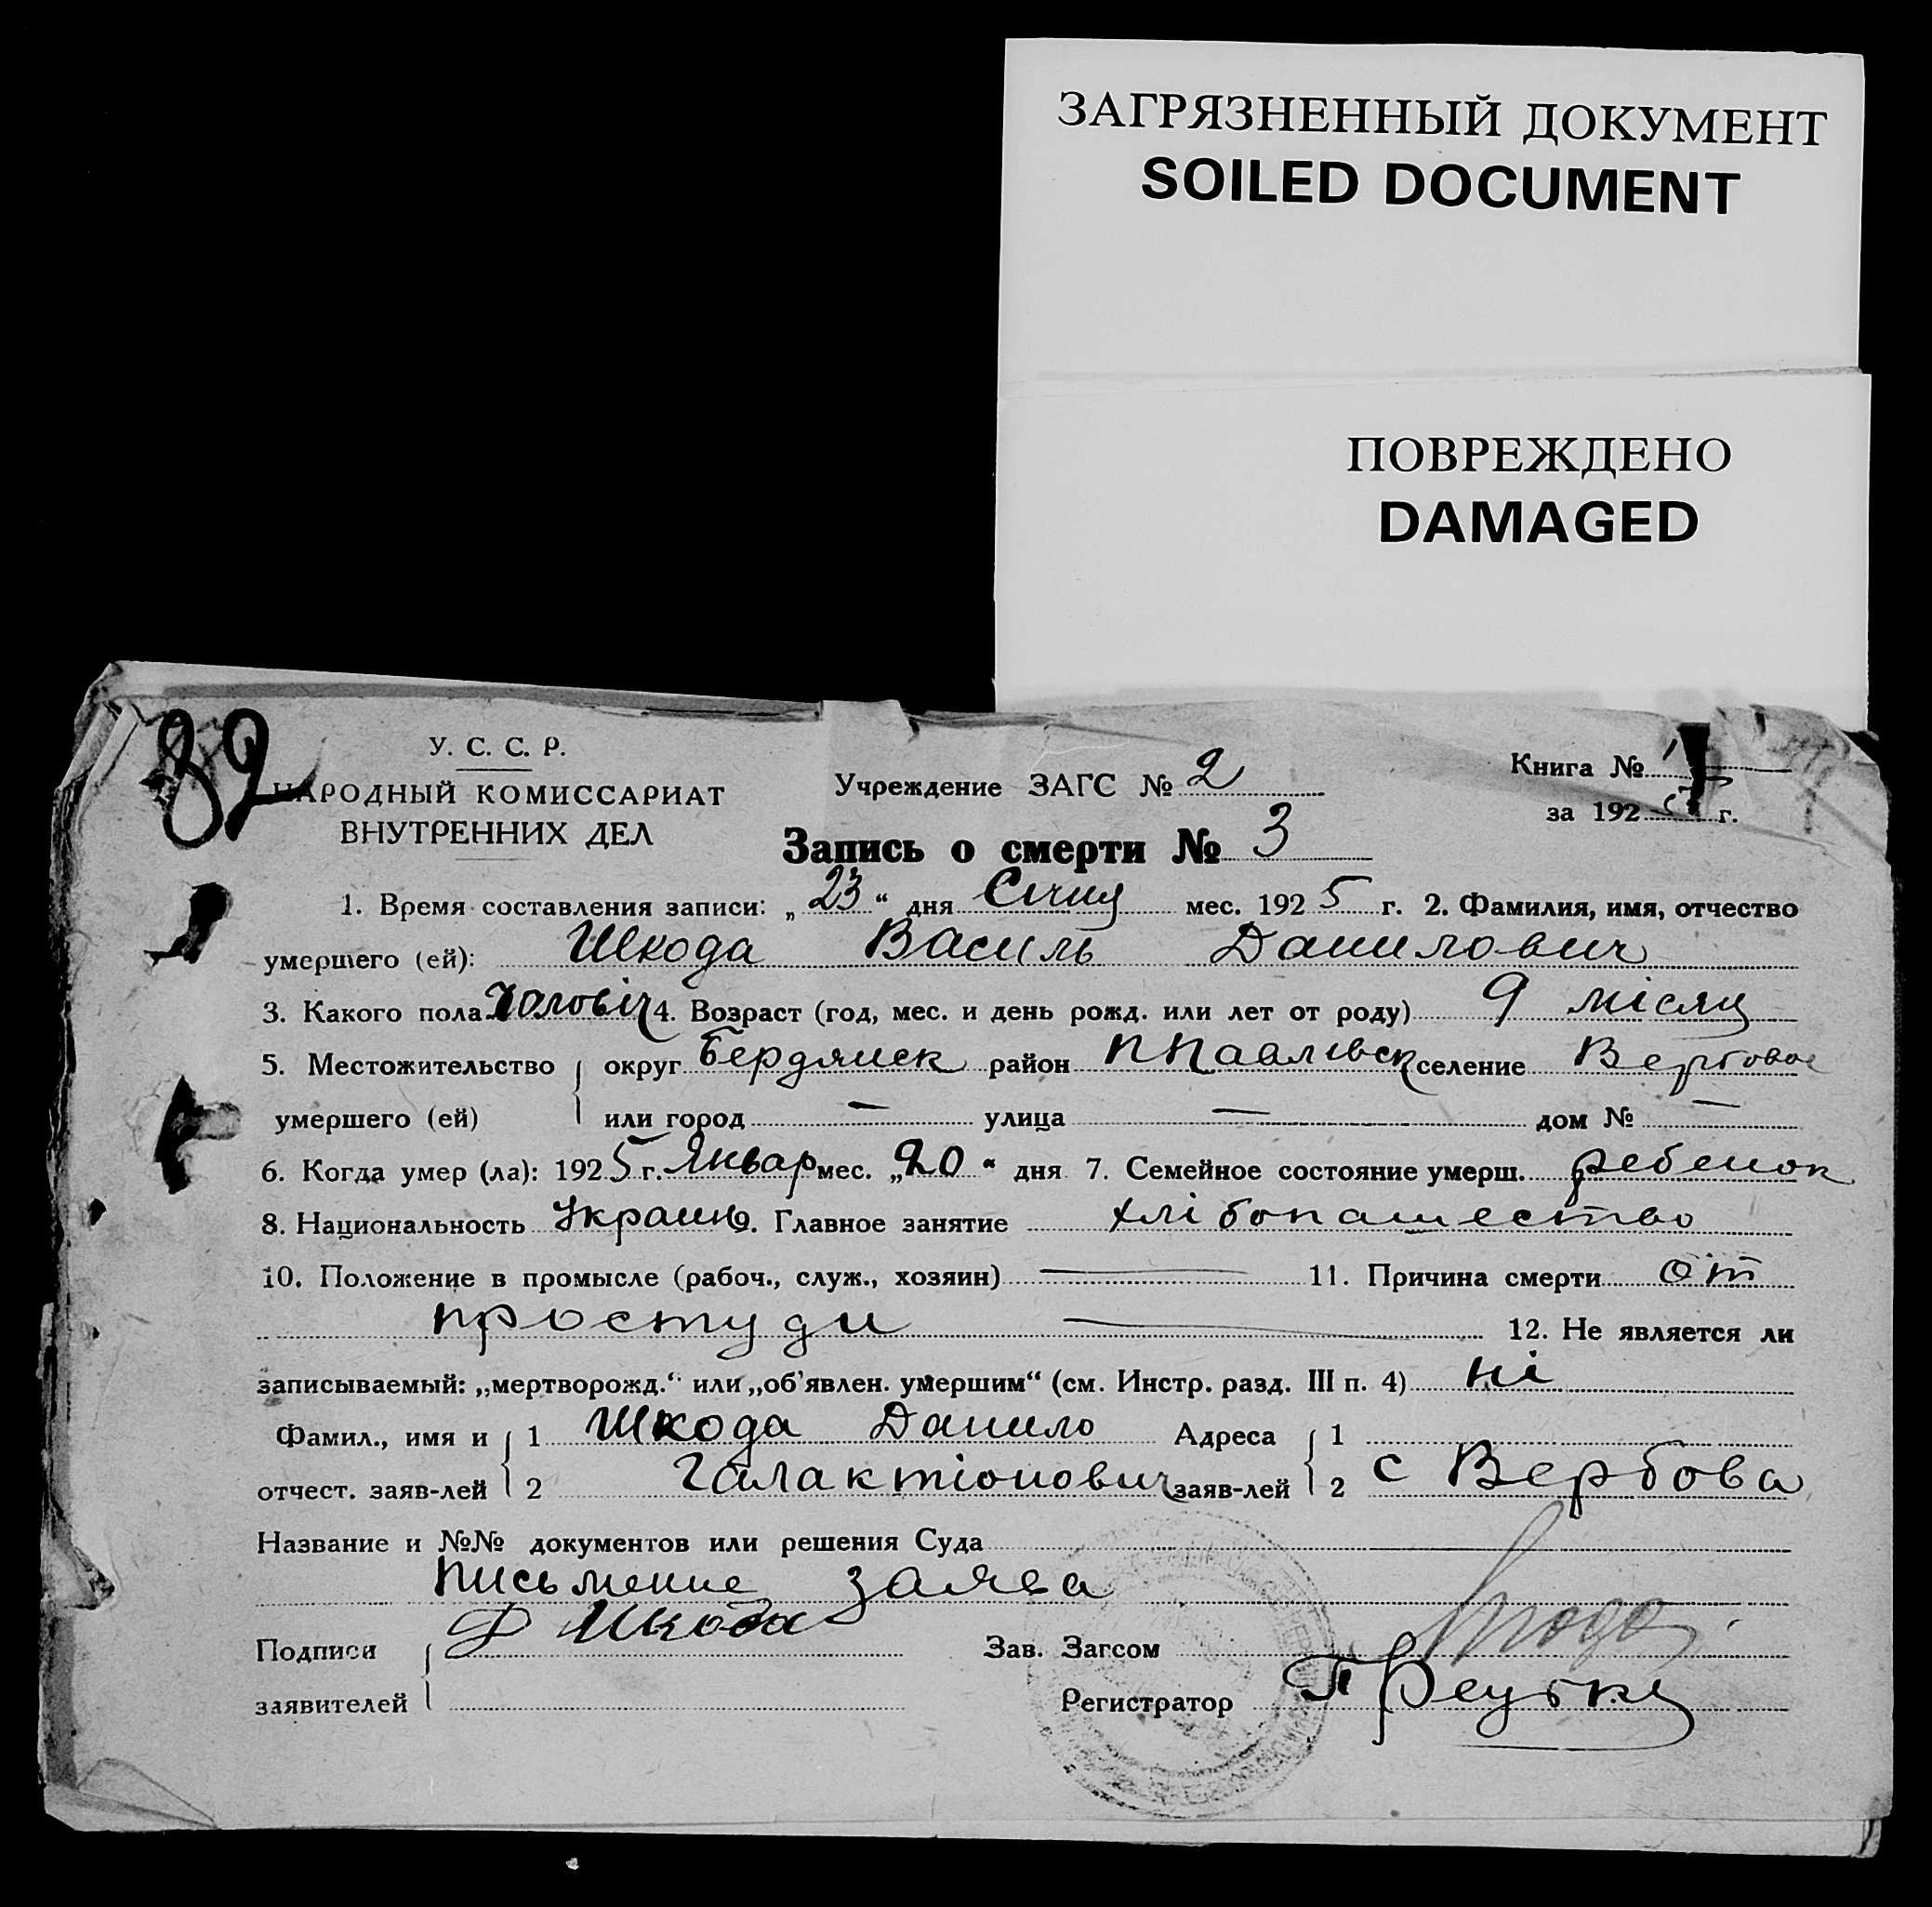 ЗАГРЯЗНЕННЫЙ ДОКУМЕНТ
SOILED DOCUMENT
ПОВРЕЖДЕНО
DAMAGED
82
У. С. С. Р.
НАРОДНЫЙ КОМИССАРИАТ
ВНУТРЕННИХ ДЕЛ
Учреждение ЗАГС № 2
Книга № 1
за 192 г.
Запись о смерти № 3
1. Время составления записи: „23“ дня Січня мес. 1925 г. 2. Фамилия, имя, отчество
умершего (ей): Шкода Василь Данилович
3. Какого пола Чоловіч 4. Возраст (год, мес. и день рожд. или лет от роду) 9 місяц
5. Местожительство округ Бердянск район ППавлівск селение Вербовое
умершего (ей) или город — улица — дом № —
6. Когда умер (ла): 1925 г. Январ мес. „20“ дня 7. Семейное состояние умерш. ребенок
8. Национальность Украин 9. Главное занятие хлібопашество
10. Положение в промысле (рабоч., служ., хозяин) — 11. Причина смерти от
простуди — 12. Не является ли
записываемый: „мертворожд.“ или „об'явлен. умершим“ (см. Инстр. разд. III п. 4) ні
Фамил., имя и 1 Шкода Данило Адреса 1
отчест. заяв-лей 2 Галактіонович заяв-лей 2 с Вербова
Название и №№ документов или решения Суда
письменне заява
Подписи Д Шкода Зав. Загсом
заявителей Регистратор